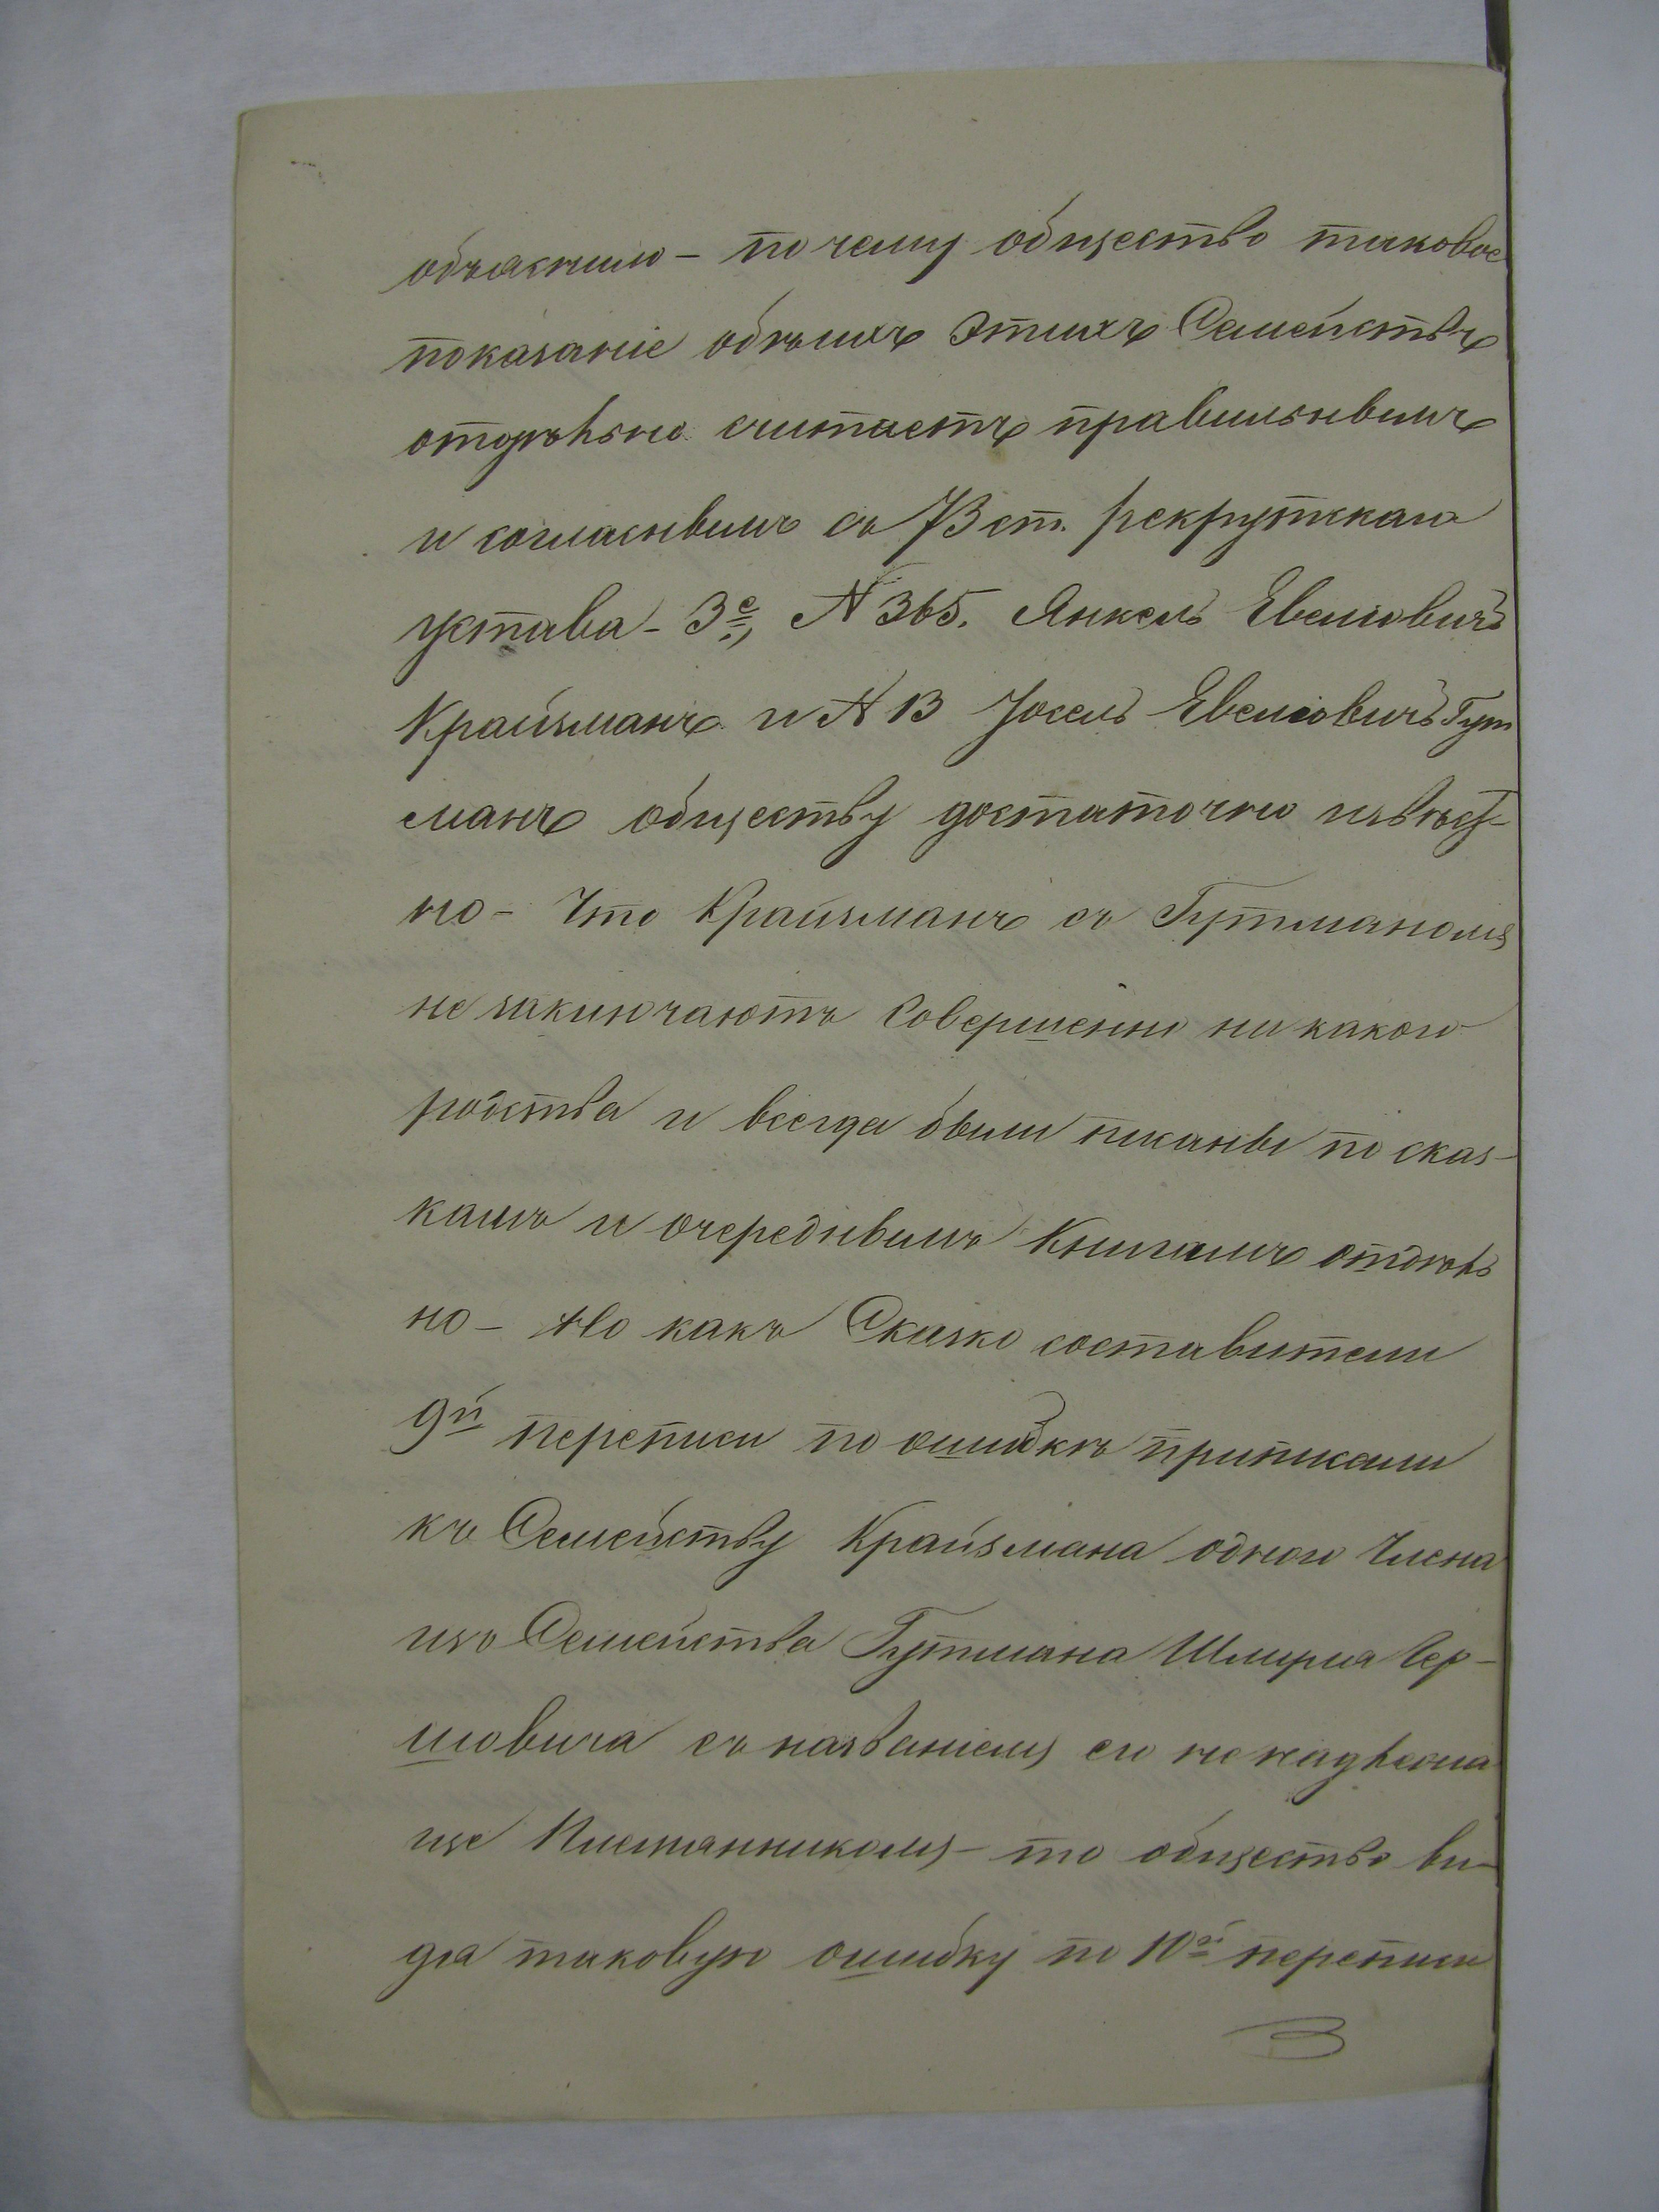 объяснило – по чему общество таковое
показаніе обѣихъ этихъ Семействъ
отдѣльно считаетъ правильнымъ
и согласнымъ съ 73 ст. рекрутскаго
устава – 3е., № 365. Янкель Евелiовичъ
Крайзманъ и № 13 Іосель Евеліовичъ Гут
манъ обществу достаточно извѣст-
но – Что Крайзманъ съ Гутманомъ
не заключаютъ Совершенно ни какого
родства и всегда были писаны по сказ-
камъ и очереднымъ Книгамъ отдѣль
но – Но какъ Сказко составители
9й переписи по ошибкѣ приписали
къ Семейству Крайзмана одного Члена
изъ Семейства Гутмана Шмерля Гер-
шовича съ названіемъ его не надлежа
ще Племянникомъ – то общество ви-
дя таковую ошибку по 10й переписи